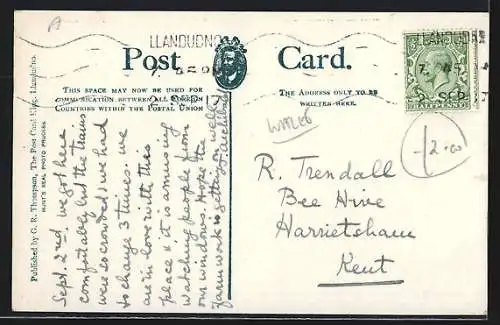 LLANDUDNO
Post Card.
THIS SPACE MAY NOW BE USED FOR
COMMUNICATION BETWEEN ALL FOREIGN
COUNTRIES WITHIN THE POSTAL UNION
THE ADDRESS ONLY TO BE
WRITTEN HERE.
LLANDUDNO
SEP
HALFPENNY
SEP 17
Published by G. R. Thompson, The Post Card King, Llandudno.
HUNT'S REAL PHOTO PROCESS
Sept. 2nd. we got here
comfortably but the trains
were so crowded & we had
to change 3 times. we
are in love with this
place & it is amusing
watching people from
our windows. Hope the
farm work is getting
R. Trendall
Bee Hive
Harrietsham
Kent